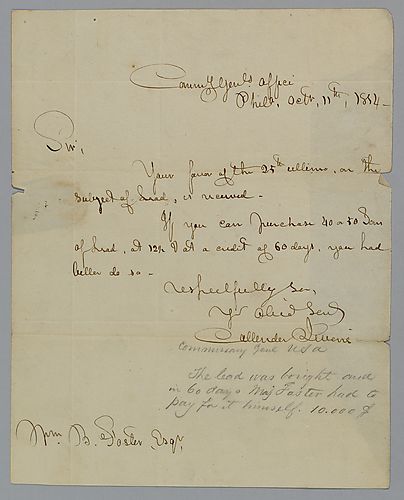 Commy Genls Office
Philad. Octr. 11th, 1814-
Sir,
Your favor of the 25th ultimo, on the
subject of Lead, is received.
If you can purchase 40 or 50 Tons
of Lead, at 12½ at a credit of 60 days, you had
better do so -
Respectfully Sir,
Yr Obed Servt
Callender Irvine
Commissary Genl USA
The lead was bought and
in 60 days Maj Foster had to
pay for it himself. 10.000 $
Wm. B. Foster, Esqr.